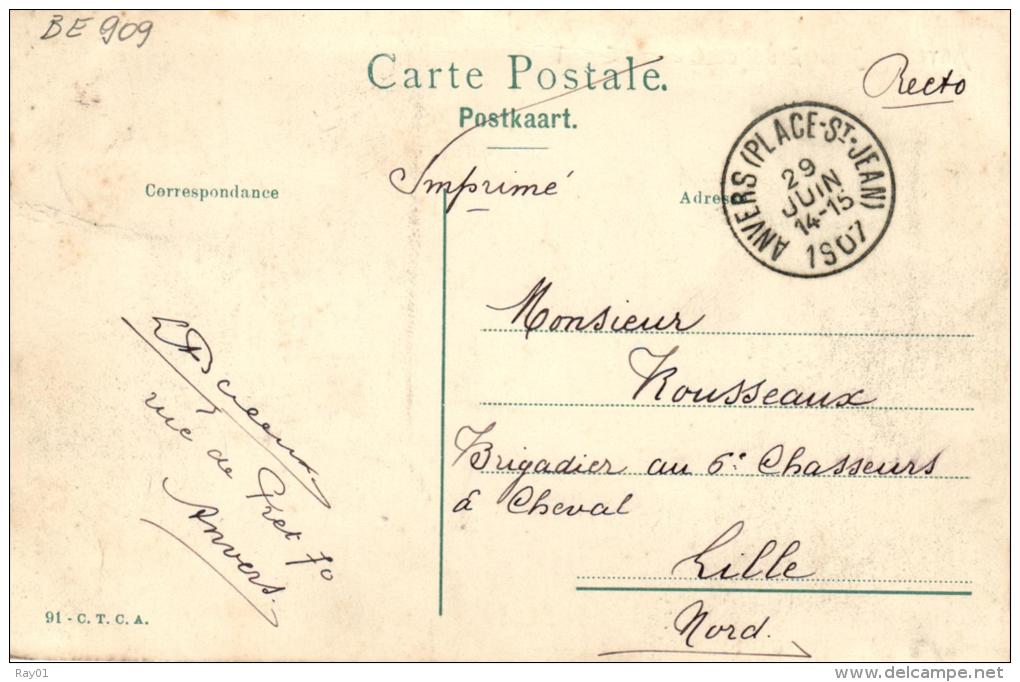 BE 909
Carte Postale.
Postkaart.
Recto
Imprimé
Correspondance
Adres
ANVERS (PLACE-ST-JEAN)
29
JUIN
14-15
1907
Monsieur
Rousseaux
Brigadier au 6e Chasseurs
à Cheval
Lille
Nord.
rue de 70
Anvers.
91 - C. T. C. A.
Ray01
www.delcampe.net